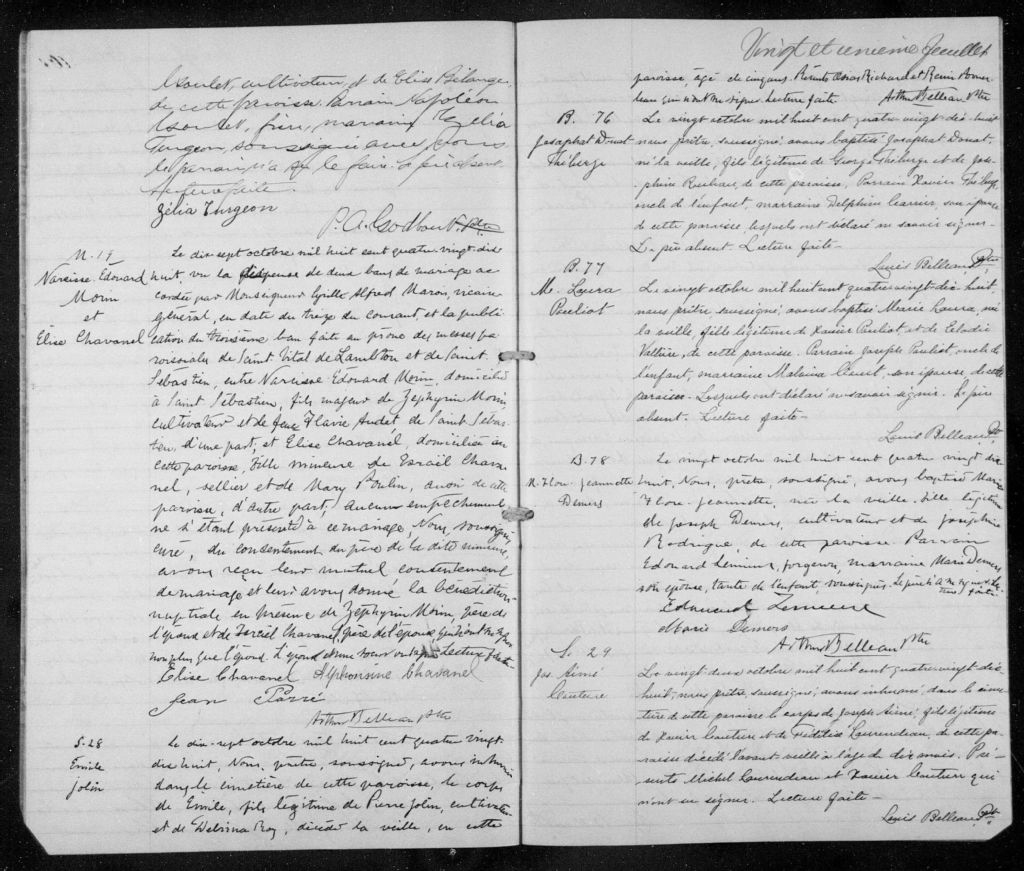 Goulet, cultivateur, et de Elise Bélanger
de cette paroisse. Parrain Napoléon
Goulet, frère, marraine Zélia
Turgeon, soussignée avec nous
le parrain n'a su le faire. Le père absent
Lecture faite.
Zélia Turgeon
P. A. Godbout, Ptre
M. 19
Narcisse Édouard
Morin
et
Élise Chavanel
Le dix sept octobre mil huit cent quatre-vingt-dix
huit, vu la dispense de deux bans de mariage ac
cordée par Monseigneur Cyrille Alfred Marois, vicaire
général, en date du treize du courant et la publi
cation du troisième ban faite au prône des messes pa
roissiales de Saint Vital de Lambton et de Saint
Sébastien, entre Narcisse Edouard Morin, domicilié
à Saint Sébastien, fils majeur de Zéphyrin Morin
cultivateur et de feue Flavie Audet de Saint Sébas
tien, d'une part, et Elise Chavanel, domiciliée en
cette paroisse, fille mineure de Israël Chava
nel, sellier et de Mary Poulin, aussi de cette
paroisse, d'autre part; aucun empêchement
ne s'étant présenté à ce mariage Nous, soussigné,
curé, du consentement du père de la dite mineure,
avons reçu leur mutuel consentement
de mariage et leur avons donné la bénédiction
nuptiale en présence de Zéphyrin Morin, père de
l'époux et de Israël Chavanel, père de l'épouse, qui n'ont su signer
non plus que l'époux. L'épouse et une soeur ont signé Lecture faite
Élise Chavanel Alphonsine Chavanel
Jean Paré
Arthur Belleau Ptre
S. 28
Émile
Jolin
Le dix-sept octobre mil huit cent quatre vingt
dix huit, Nous, prêtre, soussigné, avons inhumé
dans le cimetière de cette paroisse, le corps
de Emile, fils légitime de Pierre Jolin, cultivateur
et de Delvina Roy, décédé la veille, en cette
Vingt et unième feuillet
paroisse, âgé de cinq ans. Présents Richard et Remi
qui n'ont su signer. Lecture faite
Arthur Belleau Ptre
B. 76
Josaphat Donat
Théberge
Le vingt octobre mil huit cent quatre vingt-dix-huit
nous, prêtre, soussigné, avons baptisé Josaphat Donat,
né la veille, fils légitime de George Théberge et de José-
phine, de cette paroisse, Parrain Xavier Théberge,
oncle de l'enfant, marraine Delphine Carrier, son épouse
de cette paroisse, lesquels ont déclaré ne savoir signer.
Le père absent. Lecture faite—
Louis Belleau Ptre
B. 77
M. Laura
Pouliot
Le vingt octobre mil huit cent quatre vingt-dix huit,
nous prêtre, soussigné, avons baptisé Marie Laura, née
la veille, fille légitime de Xavier Pouliot et de Elodie
Vallière, de cette paroisse. Parrain Joseph Pouliot, oncle de
l'enfant, marraine Malvina, son épouse de cette
paroisse. Lesquels ont déclaré ne savoir signer. Le père
absent. Lecture faite—
Louis Belleau Ptre
B. 78
M. Flore-Jeannette
Demers
Le vingt octobre mil huit cent quatre vingt dix
huit, Nous, prêtre, soussigné, avons baptisé Marie
Flore-Jeannette, née la veille, fille légitime
de Joseph Demers, cultivateur et de Joséphine
Rodrigue, de cette paroisse Parrain
Edouard Lemieux, forgeron, marraine Marie Demers
son épouse, tante de l'enfant, soussignés. Le père Lecture faite
Edouard Lemieux
Marie Demers
Arthur Belleau Ptre
S. 29
Jos. Aimé
Couture
Le vingt deux octobre mil huit cent quatre vingt-dix
huit, nous prêtre, soussigné, avons inhumé, dans le cime
tière de cette paroisse le corps de Joseph Aimé, fils légitime
de Xavier Couture et de Fédélia Laurendeau, de cette pa
roisse décédé l'avant veille à l'âge de dix mois. Pré-
sents Michel Laurendeau et Xavier Couture qui
n'ont su signer. Lecture faite—
Louis Belleau Ptre